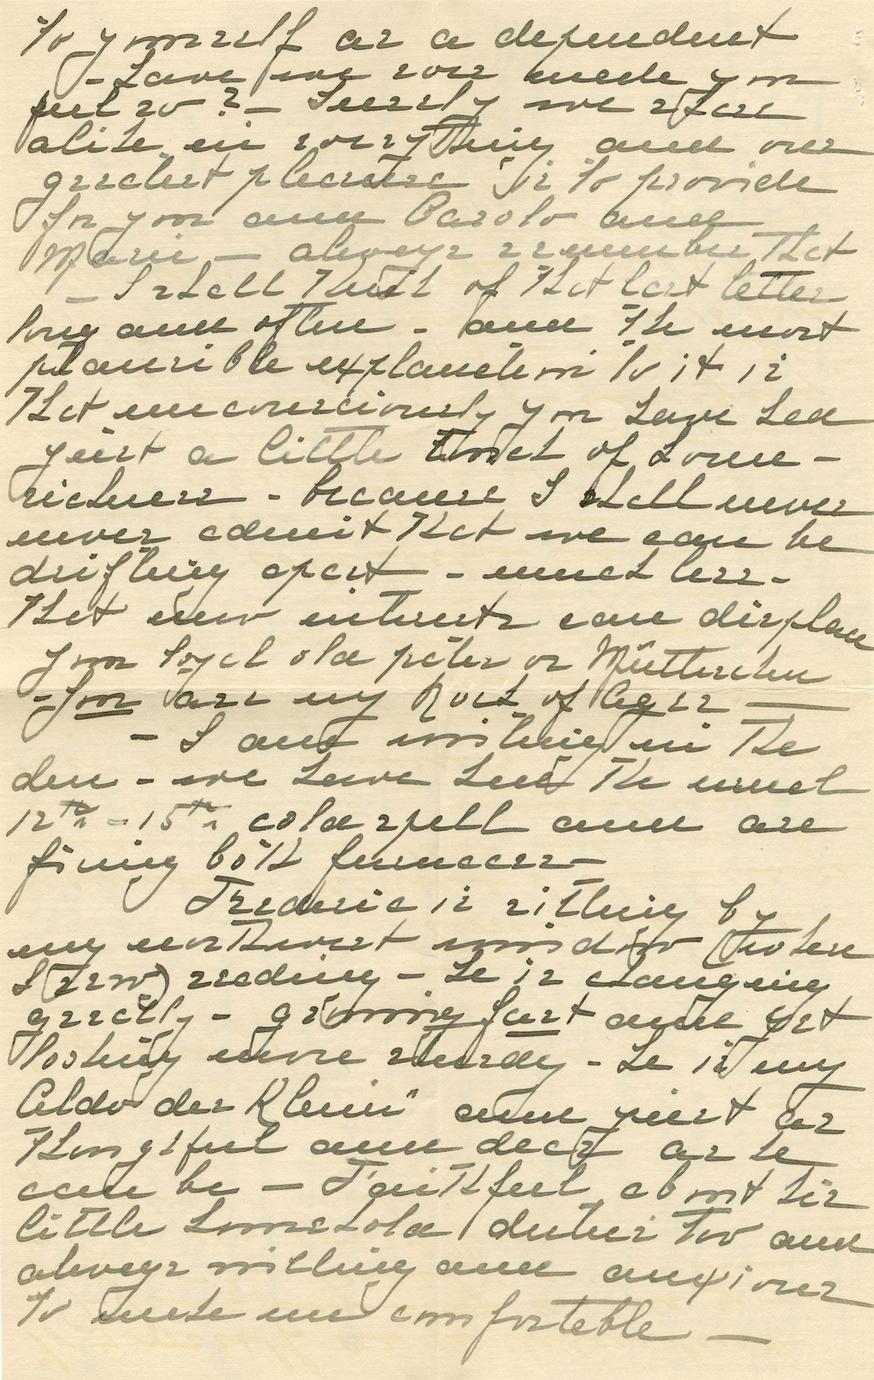 to yourself as a dependent
- Have we ever made you
feel so? - Surely we share
alike in everything and our
greatest pleasure is to provide
for you and Carolo and
Marie - always remember that
- I shall think of that last letter
long and often - and the most
plausible explanation to it is
that unconsciously you have had
just a little touch of home-
sickness - because I shall never
never admit that we can be
drifting apart - much less -
that new interests can displace
your loyal old pater or Mütterchen
- You are my Rock of Ages -
- I am writing in the
den - we have had the usual
12th - 15th cold spell and are
firing both furnaces -
Frederic is sitting by
my northwest window (when
I sew) reading - he is changing
greatly - growing fast and yet
looking more sturdy - he is my
Aldo der Klein" and just as
thoughtful and dear as he
can be - Faithful about his
little household duties too and
always willing and anxious
to make me comfortable -